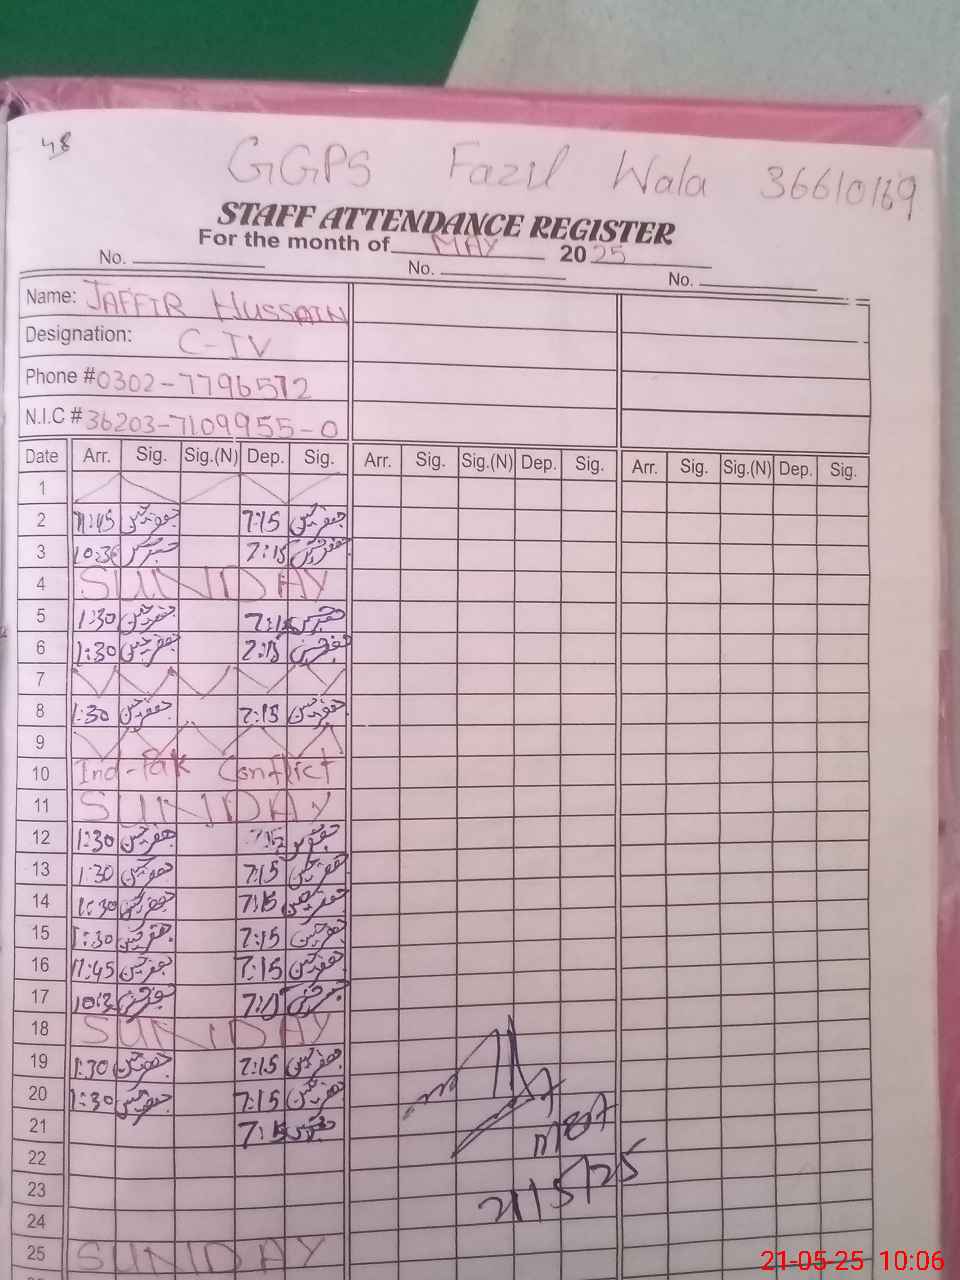 48
GGPS Fazil Wala 36610169
STAFF ATTENDANCE REGISTER
For the month of MAY 2025
No. No. No.
Name: JAFFIR HUSSAIN
Designation: C-IV
Phone # 0302-7796572
N.I.C # 36203-7109955-0
Date Arr. Sig. Sig.(N) Dep. Sig. Arr. Sig. Sig.(N) Dep. Sig. Arr. Sig. Sig.(N) Dep. Sig.
1
2 11:45 جعفر حسین 7:15 جعفر حسین
3 10:30 جعفر حسین 7:15 جعفر حسین
4 SUNDAY
5 1:30 جعفر حسین 7:15 جعفر حسین
6 1:30 جعفر حسین 7:15 جعفر حسین
7
8 1:30 جعفر حسین 7:15 جعفر حسین
9
10 Ind-Pak Conflict
11 SUNDAY
12 1:30 جعفر حسین 7:15 جعفر حسین
13 1:30 جعفر حسین 7:15 جعفر حسین
14 1:30 جعفر حسین 7:15 جعفر حسین
15 1:30 جعفر حسین 7:15 جعفر حسین
16 11:45 جعفر حسین 7:15 جعفر حسین
17 جعفر حسین 7:15 جعفر حسین
18 SUNDAY
19 1:30 جعفر حسین 7:15 جعفر حسین
20 1:30 جعفر حسین 7:15 جعفر حسین
21 7:15 جعفر حسین
22
23
24
25 SUNDAY
21/5/25
21-05-25 10:06